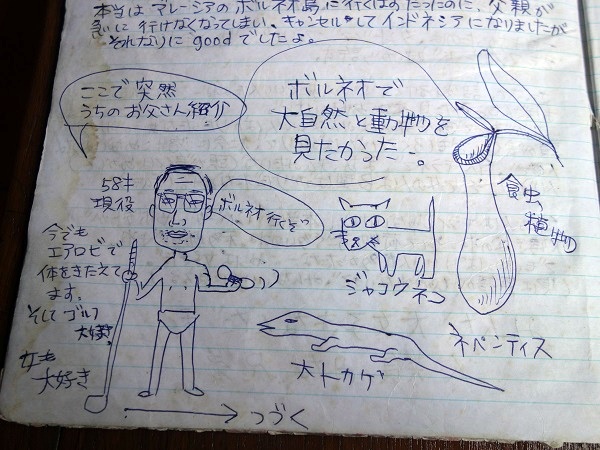 本当はマレーシアのボルネオ島に行くはずだったのに、父親が
急に行けなくなってしまい、キャンセルしてインドネシアになりましたが
それなりにgoodでしたよ。
ここで突然
うちのお父さん紹介
ボルネオで
大自然と動物を
見たかった…。
58才
現役
ボルネオ行くぞっ
今でも
エアロビで
体をきたえて
ます。
そしてゴルフ
大好き
女も
大好き
ジャコウネコ
食虫植物
大トカゲ
ネペンティス
つづく